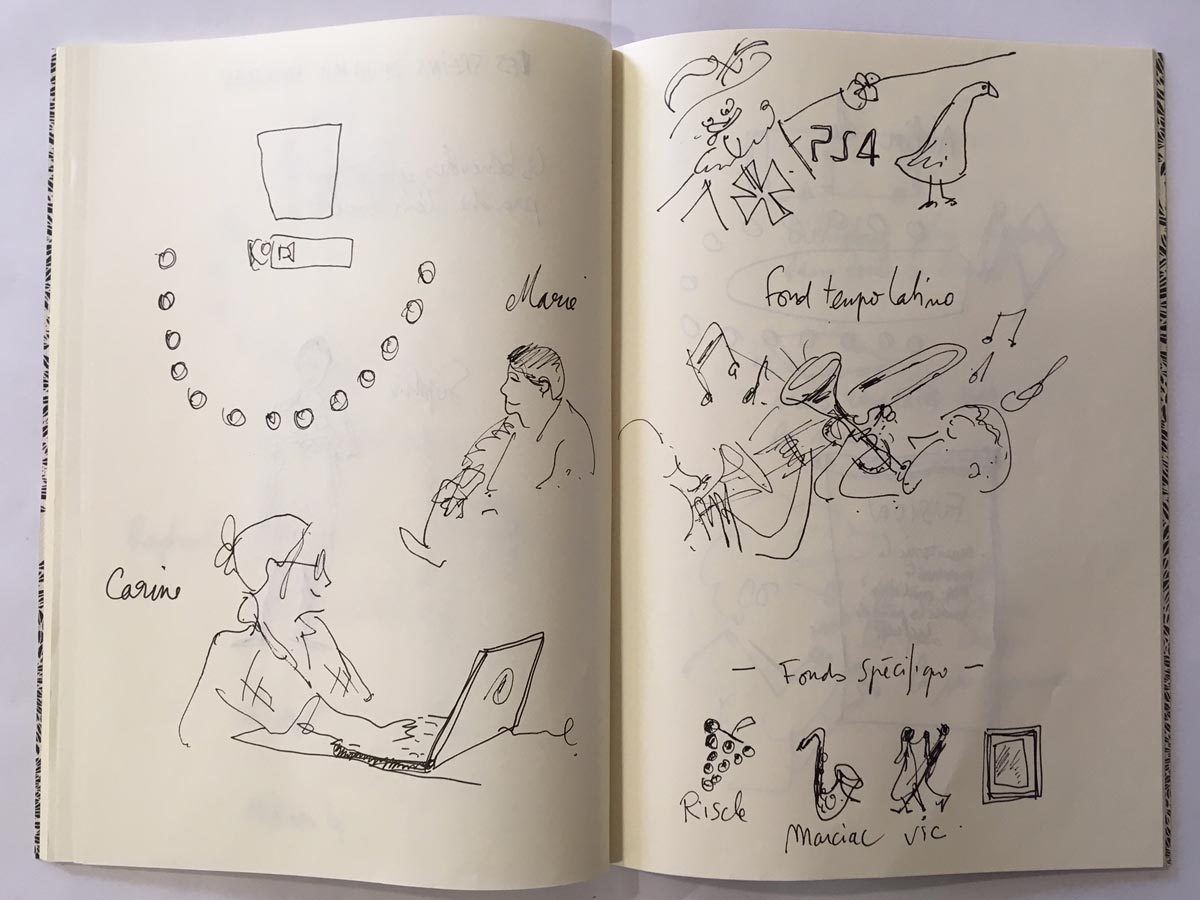 Marie
Carine
PS4
Fond tempo latino
— Fonds Spécifique —
Riscle
Marciac Vic.